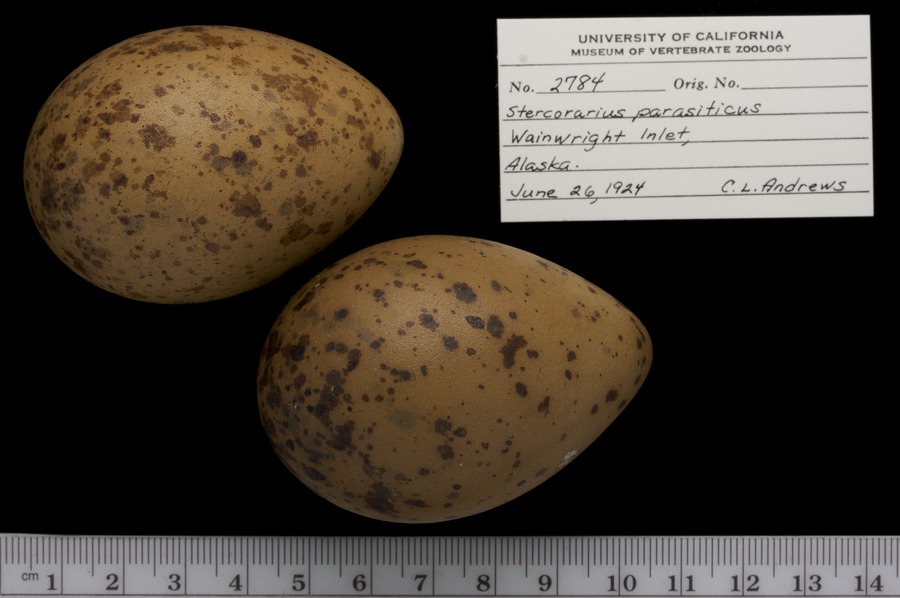 UNIVERSITY OF CALIFORNIA
MUSEUM OF VERTEBRATE ZOOLOGY
No. 2784 Orig. No.
Stercorarius parasiticus
Wainwright Inlet,
Alaska.
June 26, 1924 C.L. Andrews
cm 1 2 3 4 5 6 7 8 9 10 11 12 13 14